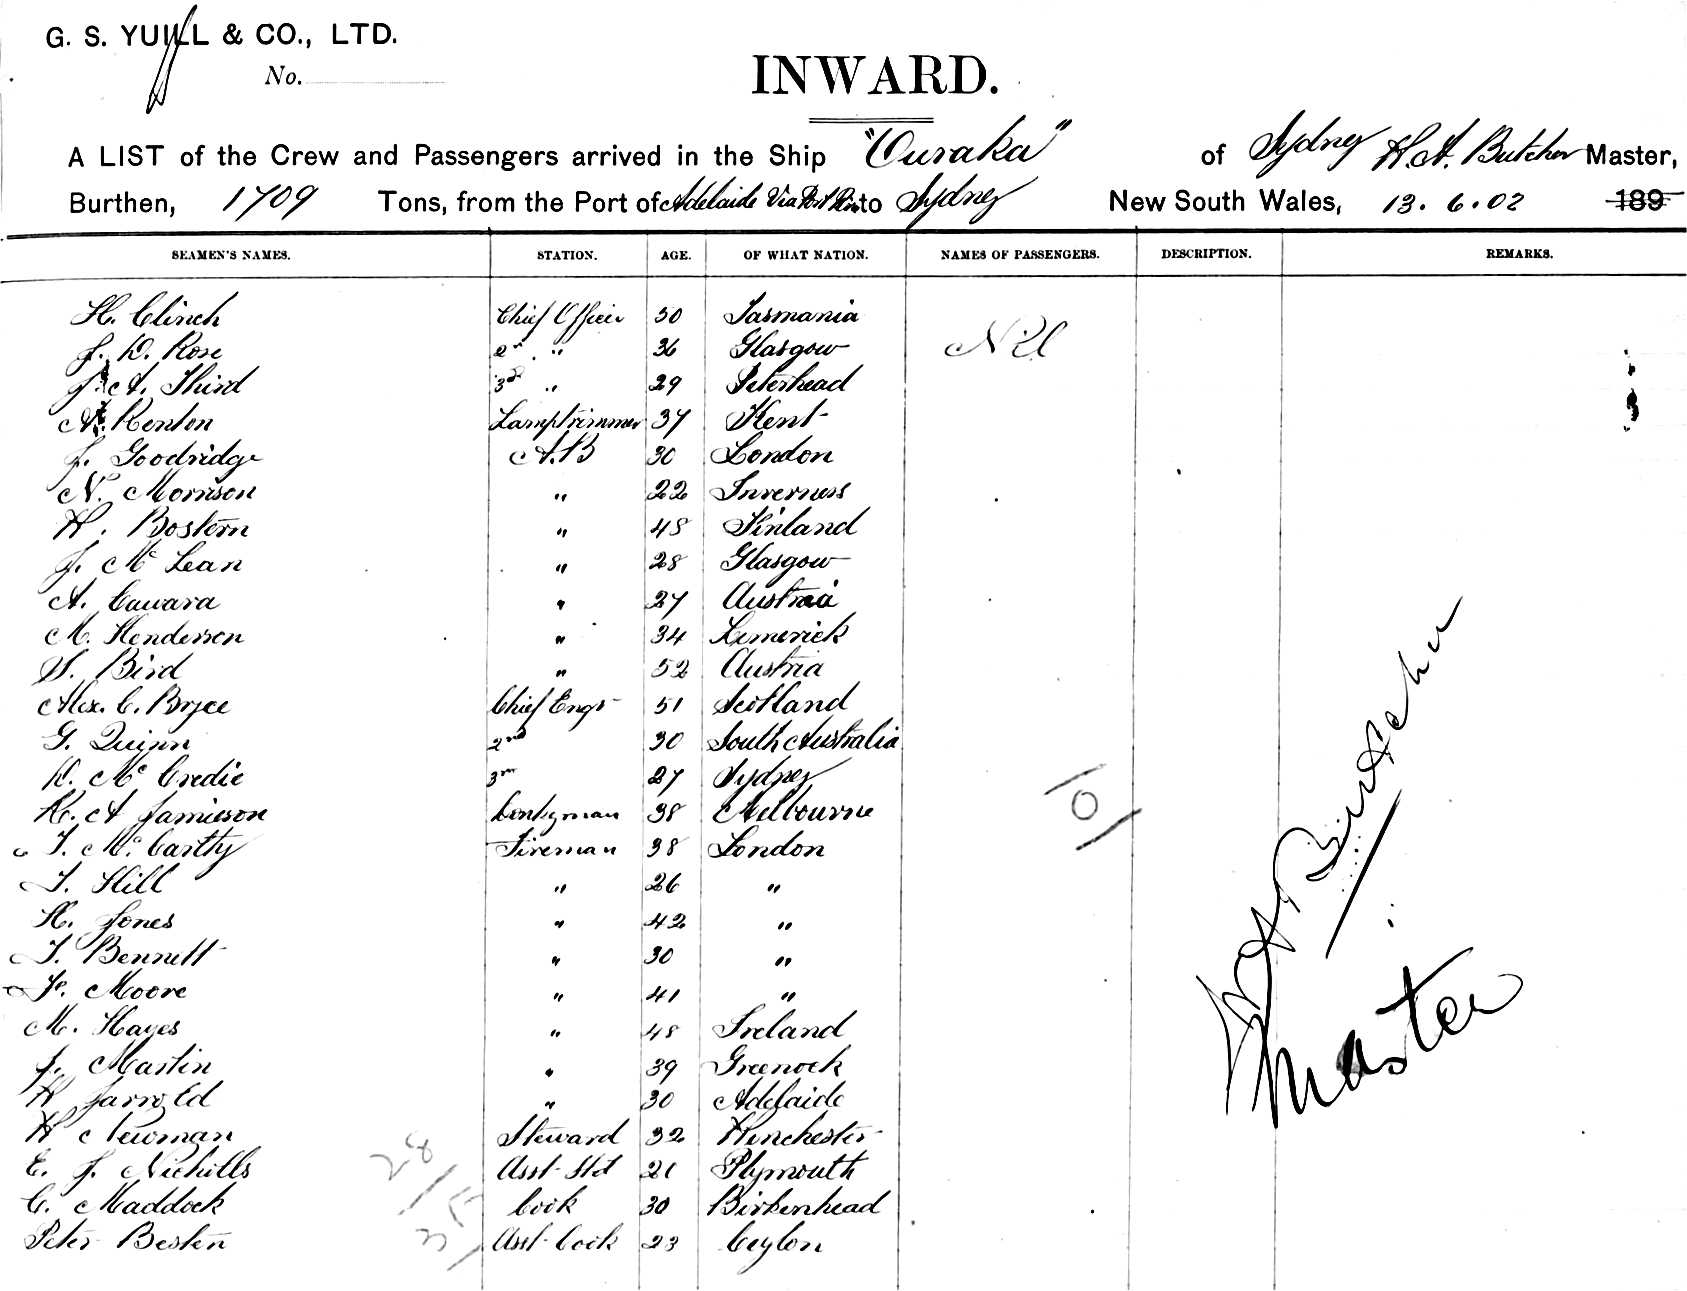 G. S. YUILL & CO., LTD.
No.
INWARD.
A LIST of the Crew and Passengers arrived in the Ship "Ouraka" of Sydney H.A. Butcher Master,
Burthen, 1709 Tons, from the Port of Adelaide Via Port Pirie to Sydney New South Wales, 13.6.02 189
SEAMEN'S NAMES. STATION. AGE. OF WHAT NATION. NAMES OF PASSENGERS. DESCRIPTION. REMARKS.
H. Clinch Chief Officer 30 Tasmania
J. D. Rose 2nd " 36 Glasgow Nil
J. A. Third 3rd " 29 Peterhead
A. Kenton Lamptrimmer 37 Kent
J. Goodridge A.B 30 London
N. Morrison " 22 Inverness
H. Bostern " 48 Finland
J. Mc Lean " 28 Glasgow
A. Cavara " 27 Austria
M. Henderson " 34 Limerick
S. Bird " 52 Austria
Alex. C. Bryce Chief Engr 51 Scotland
G. Quinn 2nd 30 South Australia
D. Mc Credie 3rd 27 Sydney
R. A Jamieson Donkyman 38 Melbourne
T. Mc Carthy Fireman 38 London
T. Hill " 26 "
H. Jones " 42 "
T. Bennett " 30 "
F. Moore " 41 "
M. Hayes " 48 Ireland
J. Martin " 39 Greenock
H Jarrold " 30 Adelaide
H Newman Steward 32 Winchester
E. J. Nicholls Asst Std 21 Plymouth
C. Maddock Cook 30 Birkenhead
Peter Besten Asst Cook 23 Ceylon
28
/ 0 /
H A Butcher
Master